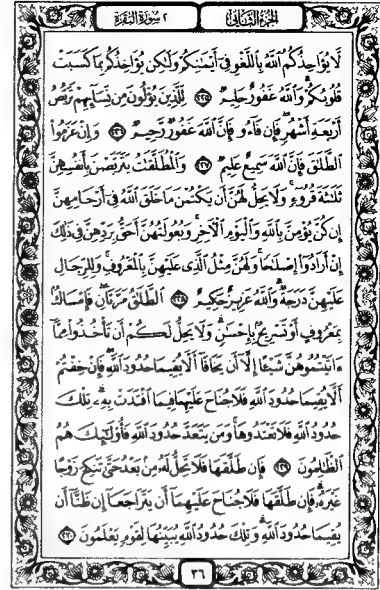 الجزء الثاني
٢ سورة البقرة
لَّا يُؤَاخِذُكُمُ اللَّهُ بِاللَّغْوِ فِي أَيْمَانِكُمْ وَلَٰكِن يُؤَاخِذُكُم بِمَا كَسَبَتْ
قُلُوبُكُمْ وَاللَّهُ غَفُورٌ حَلِيمٌ ٢٢٥ لِّلَّذِينَ يُؤْلُونَ مِن نِّسَائِهِمْ تَرَبُّصُ
أَرْبَعَةِ أَشْهُرٍ فَإِن فَاءُو فَإِنَّ اللَّهَ غَفُورٌ رَّحِيمٌ ٢٢٦ وَإِنْ عَزَمُوا
الطَّلَاقَ فَإِنَّ اللَّهَ سَمِيعٌ عَلِيمٌ ٢٢٧ وَالْمُطَلَّقَاتُ يَتَرَبَّصْنَ بِأَنفُسِهِنَّ
ثَلَاثَةَ قُرُوءٍ وَلَا يَحِلُّ لَهُنَّ أَن يَكْتُمْنَ مَا خَلَقَ اللَّهُ فِي أَرْحَامِهِنَّ
إِن كُنَّ يُؤْمِنَّ بِاللَّهِ وَالْيَوْمِ الْآخِرِ وَبُعُولَتُهُنَّ أَحَقُّ بِرَدِّهِنَّ فِي ذَٰلِكَ
إِنْ أَرَادُوا إِصْلَاحًا وَلَهُنَّ مِثْلُ الَّذِي عَلَيْهِنَّ بِالْمَعْرُوفِ وَلِلرِّجَالِ
عَلَيْهِنَّ دَرَجَةٌ وَاللَّهُ عَزِيزٌ حَكِيمٌ ٢٢٨ الطَّلَاقُ مَرَّتَانِ فَإِمْسَاكٌ
بِمَعْرُوفٍ أَوْ تَسْرِيحٌ بِإِحْسَانٍ وَلَا يَحِلُّ لَكُمْ أَن تَأْخُذُوا مِمَّا
ءَاتَيْتُمُوهُنَّ شَيْئًا إِلَّا أَن يَخَافَا أَلَّا يُقِيمَا حُدُودَ اللَّهِ فَإِنْ خِفْتُمْ
أَلَّا يُقِيمَا حُدُودَ اللَّهِ فَلَا جُنَاحَ عَلَيْهِمَا فِيمَا افْتَدَتْ بِهِ تِلْكَ
حُدُودُ اللَّهِ فَلَا تَعْتَدُوهَا وَمَن يَتَعَدَّ حُدُودَ اللَّهِ فَأُولَٰئِكَ هُمُ
الظَّالِمُونَ ٢٢٩ فَإِن طَلَّقَهَا فَلَا تَحِلُّ لَهُ مِن بَعْدُ حَتَّىٰ تَنكِحَ زَوْجًا
غَيْرَهُ فَإِن طَلَّقَهَا فَلَا جُنَاحَ عَلَيْهِمَا أَن يَتَرَاجَعَا إِن ظَنَّا أَن
يُقِيمَا حُدُودَ اللَّهِ وَتِلْكَ حُدُودُ اللَّهِ يُبَيِّنُهَا لِقَوْمٍ يَعْلَمُونَ ٢٣٠
٣٦